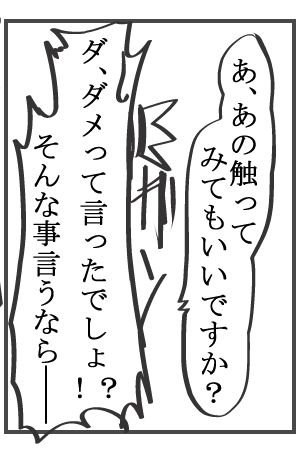 あ、あの触って
みてもいいですか？
ダ、ダメって言ったでしょ！？
そんな事言うなら――